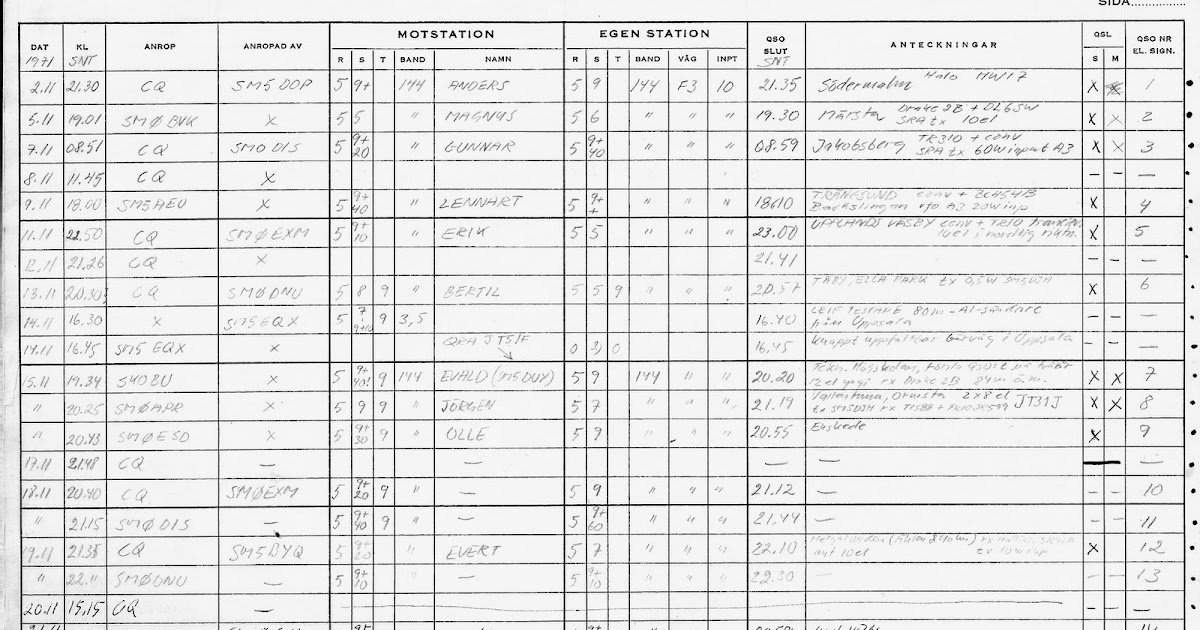 SIDA
DAT KL ANROP ANROPAD AV MOTSTATION EGEN STATION QSO SLUT ANTECKNINGAR QSL QSO NR EL. SIGN.
1971 SNT R S T BAND NAMN R S T BAND VÅG INPT SNT S M
2.11 21.30 CQ SM5DOP 5 9+ 144 ANDERS 5 9 144 F3 10 21.35 Södermalm Halo HW17 X 1
5.11 19.01 SMØBVK X 5 5 " MAGNUS 5 6 " " " 19.30 Märsta Drake 2B + DL6SW SRA tx 10el X X 2
7.11 08.51 CQ SMODIS 5 9+20 " GUNNAR 5 9+40 " " " 08.59 Jakobsberg TR310 + conv SRA tx 60W input A3 X X 3
8.11 11.45 CQ X — — —
9.11 18.00 SM5AEU X 5 9+40 " LENNART 5 9++ " " " 1810 TRÅNGSUND conv + BC454B vfo A3 20W inp X 4
11.11 22.50 CQ SMØEXM 5 9+10 " ERIK 5 5 " " " 23.00 UPPLANDS VÄSBY conv + 10el i X 5
12.11 21.26 CQ X 21.41 — — —
13.11 20.30 CQ SMØDNU 5 8 9 " BERTIL 5 5 9 " " " 20.57 TÄBY, ELLA PARK tx 0,5W SM5DJH X 6
14.11 16.30 X SM5EQX 5 7 9+10 9 3,5 16.40 LEIF TESTADE 80m-A1-sändare från Uppsala — — —
14.11 16.45 SM5EQX QRA JT51F 0 3) 0 16.45 Knappt uppfattbar bärvåg i Uppsala — — —
15.11 19.34 SKOBU X 5 9+40! 9 144 EVALD (SM5DUX) 5 9 144 " " 20.20 Tekn. Högskolan, första QSO:t på 12el yagi rx Drake 2B 84m ö.m. X X 7
" 20.25 SMØAPR X 5 9 9 " JÖRGEN 5 7 " " " 21.19 Vallentuna, Ormsta 2x8el tx SM5DJH rx JT31J X X 8
" 20.43 SMØESD X 5 9+30 9 " OLLE 5 9 " " " 20.55 Enskede X 9
17.11 21.48 CQ — — — — — — —
18.11 20.40 CQ SMØEXM 5 9+20 9 " — 5 9 " " " 21.12 — — — 10
" 21.15 SMØDIS — 5 9+40 9 " — 5 9+60 " " " 21.44 — — — 11
19.11 21.35 CQ SM5BYQ 5 9+20 " EVERT 5 7 " " " 22.10 10el tx 10W inp X 12
" 22.11 SMØDNU — 5 9+10 " — 5 9+10 " " " 22.30 — — — 13
20.11 15.15 CQ — — — —